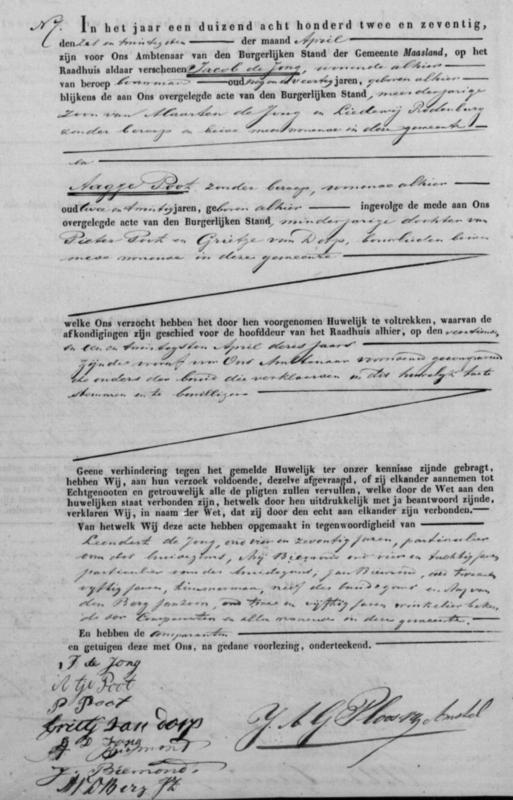 In het jaar een duizend acht honderd twee en zeventig,
den der maand April
zijn voor Ons Ambtenaar van den Burgerlijken Stand der Gemeente Maasland, op het
Raadhuis aldaar verschenen Jacob de Jong, wonende alhier
van beroep bouwman oud negen en veertig jaren, geboren alhier
blijkens de aan Ons overgelegde acte van den Burgerlijken Stand, meerderjarige
zoon van Maarten de Jong en Liedewij Rodenburg
zonder beroep en beide wonende in deze gemeente
en
Aagje Poot, zonder beroep, wonende alhier
oud twee en twintig jaren, geboren alhier ingevolge de mede aan Ons
overgelegde acte van den Burgerlijken Stand, minderjarige dochter van
Pieter Poot en Grietje van Dorp, bouwlieden beiden
mede wonende in deze gemeente
welke Ons verzocht hebben het door hen voorgenomen Huwelijk te voltrekken, waarvan de
afkondigingen zijn geschied voor de hoofddeur van het Raadhuis alhier, op den veertiende
en een en twintigsten April dezes jaars
zijnde vooraf voor Ons Ambtenaar voornoemd gecompareerd
de ouders der bruid die verklaarden in dit huwelijk toe te
stemmen en te bewilligen
Geene verhindering tegen het gemelde Huwelijk ter onzer kennisse zijnde gebragt,
hebben Wij, aan hun verzoek voldoende, dezelve afgevraagd, of zij elkander aannemen tot
Echtgenooten en getrouwelijk alle de pligten zullen vervullen, welke door de Wet aan den
huwelijken staat verbonden zijn, hetwelk door hen uitdrukkelijk met ja beantwoord zijnde,
verklaren Wij, in naam der Wet, dat zij door den echt aan elkander zijn verbonden.
Van hetwelk Wij deze acte hebben opgemaakt in tegenwoordigheid van
Leendert de Jong, oud vier en zeventig jaren, particulier
oom des bruidegoms, Arij Biemond oud vier en tachtig jaren
particulier oom des bruidegoms, Jan Biemond, oud twee en
vijftig jaren, timmerman, neef des bruidegoms en Arij van
den Berg Janszoon, oud twee en vijftig jaren winkelier beken
de der Comparanten en allen wonende in deze gemeente.
En hebben de comparanten
en getuigen deze met Ons, na gedane voorlezing, onderteekend.
J de Jong
A tje Poot
P Poot
Grietje van dorp
L D Jong
A Biemond
J. Biemond